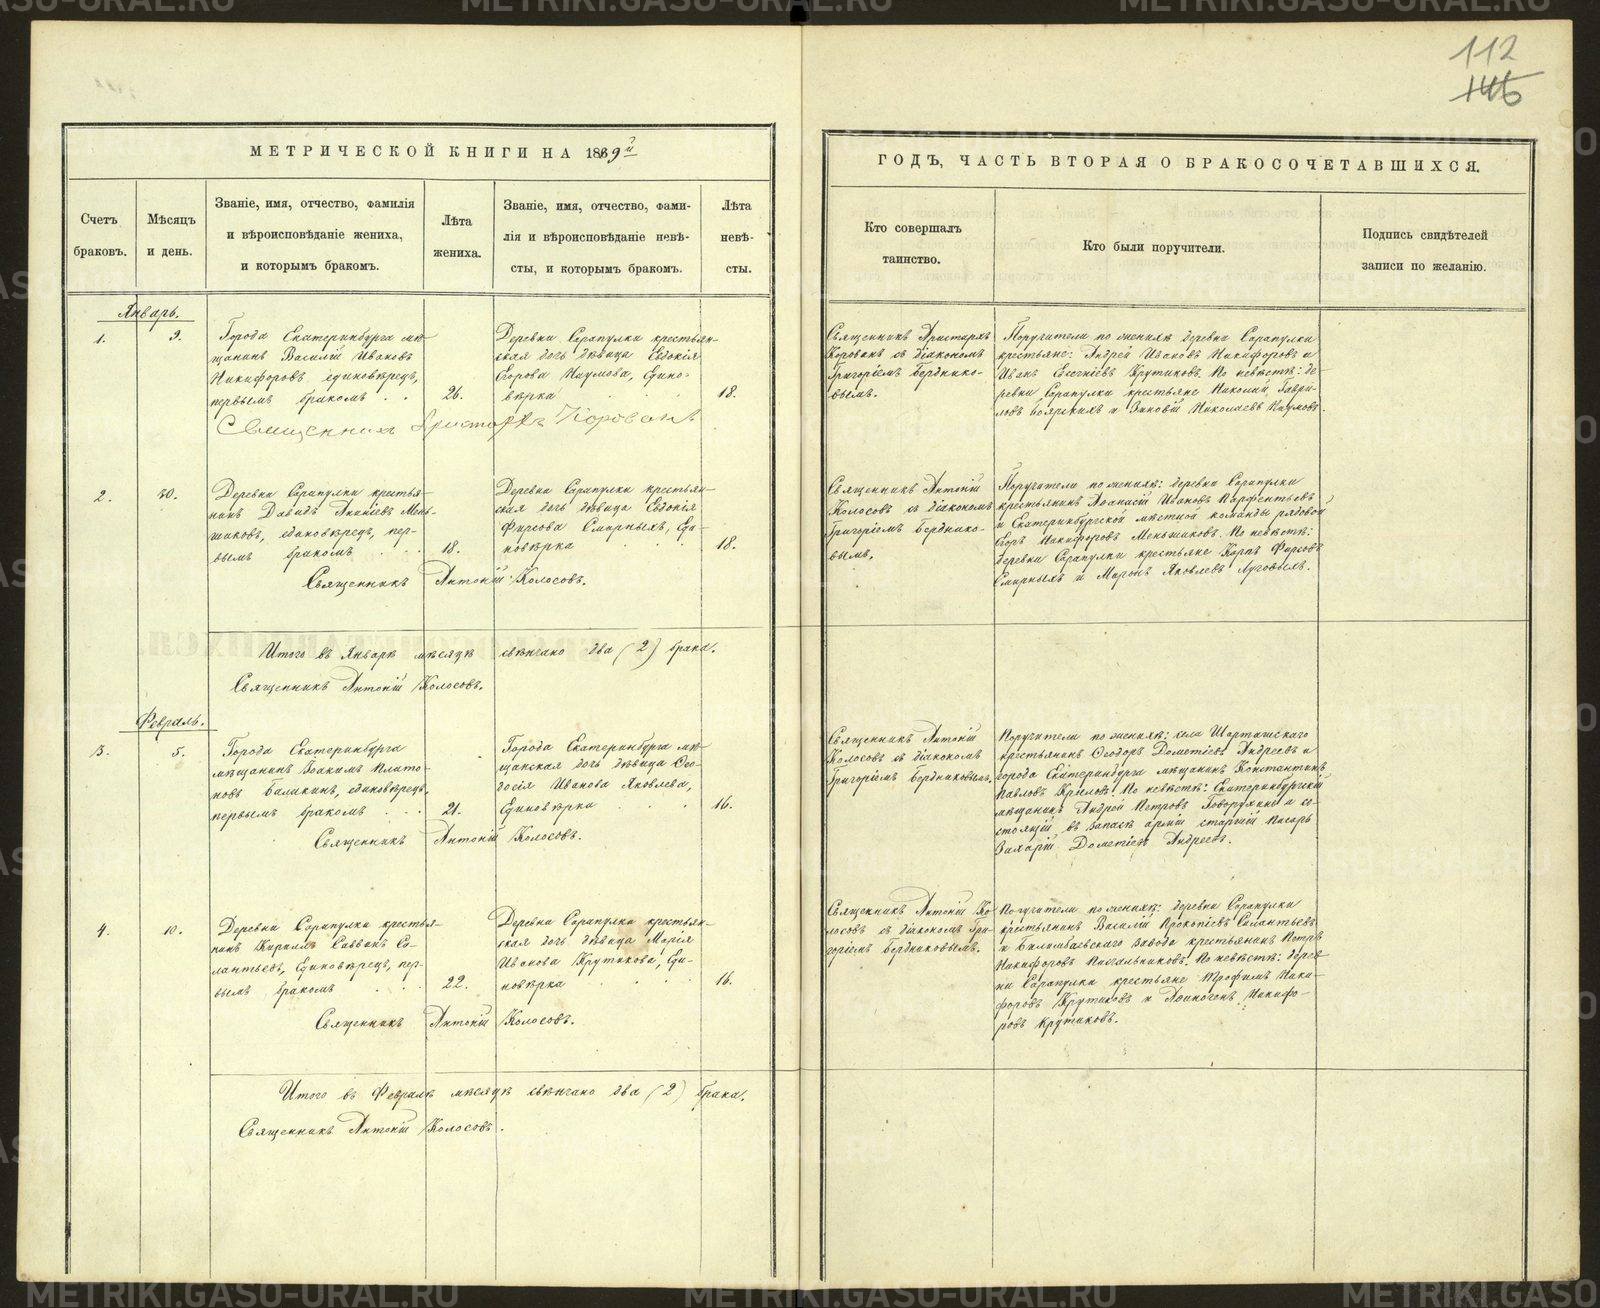 112
МЕТРИЧЕСКОЙ КНИГИ НА 1889й
Счетъ
браковъ.
Мѣсяцъ
и день.
Званіе, имя, отчество, фамилія
и вѣроисповѣданіе жениха,
и которымъ бракомъ.
Лѣта
жениха.
Званіе, имя, отчество, фами-
лія и вѣроисповѣданіе невѣ-
сты, и которымъ бракомъ.
Лѣта
невѣ-
сты.
ГОДЪ, ЧАСТЬ ВТОРАЯ О БРАКОСОЧЕТАВШИХСЯ.
Кто совершалъ
таинство.
Кто были поручители.
Подпись свидѣтелей
записи по желанію.
Январь.
1.
9.
Города Екатеринбурга мѣ-
щанинъ Василій Ивановъ
Никифоровъ единовѣрецъ,
первымъ бракомъ
26.
Деревни Сарапулки крестьян-
ская дочь дѣвица Евдокія
Егорова Наумова, Едино-
вѣрка
18.
Священникъ Аристархъ
Корованъ съ діакономъ
Григоріемъ Берднико-
вымъ.
Поручители по женихѣ деревни Сарапулки
крестьяне: Андрей Ивановъ Никифоровъ и
Иванъ Крутиковъ. По невѣстѣ: де-
ревни Сарапулки крестьяне Николай Гаври-
ловъ Боярскихъ и Зиновій Николаевъ Наумовъ.
Священникъ Аристархъ Корованъ
2.
30.
Деревни Сарапулки крестья-
нинъ Давидъ Ананіевъ Мень-
шиковъ, единовѣрецъ, пер-
вымъ бракомъ
18.
Деревни Сарапулки крестьян-
ская дочь дѣвица Евдокія
Фирсова Смирныхъ, Еди-
новѣрка
18.
Священникъ Антоній
Колосовъ съ діакономъ
Григоріемъ Берднико-
вымъ.
Поручители по женихѣ: деревни Сарапулки
крестьянинъ Аѳанасій Ивановъ Парфентьевъ
и Екатеринбургской мѣстной команды рядовой
Егоръ Никифоровъ Меньшиковъ. По невѣстѣ:
деревни Сарапулки крестьяне Карпъ Фирсовъ
Смирныхъ и Маронъ Яковлевъ Луговыхъ.
Священникъ Антоній Колосовъ.
Итого въ Январѣ мѣсяцѣ свѣнчано два (2) брака.
Священникъ Антоній Колосовъ.
Февраль.
3.
5.
Города Екатеринбурга
мѣщанинъ Іоакимъ Плато-
новъ Баликинъ, единовѣрецъ,
первымъ бракомъ
21.
Города Екатеринбурга мѣ-
щанская дочь дѣвица Ѳео-
досія Иванова Яковлева,
Единовѣрка
16.
Священникъ Антоній
Колосовъ съ діакономъ
Григоріемъ Бердниковымъ.
Поручители по женихѣ: села Шарташскаго
крестьянинъ Ѳеодоръ Дометіевъ Андреевъ и
города Екатеринбурга мѣщанинъ Константинъ
Павловъ Крыловъ. По невѣстѣ: Екатеринбургскій
мѣщанинъ Андрей Петровъ Говорухинъ и со-
стоящій въ запасѣ арміи старшій писарь
Захарій Дометіевъ Андреевъ.
Священникъ Антоній Колосовъ.
4.
10.
Деревни Сарапулки крестья-
нинъ Кириллъ Саввинъ Са-
лантьевъ, Единовѣрецъ, пер-
вымъ бракомъ
22.
Деревни Сарапулки крестьян-
ская дочь дѣвица Марія
Иванова Крутикова, Еди-
новѣрка
16.
Священникъ Антоній Ко-
лосовъ съ діакономъ Гри-
горіемъ Бердниковымъ.
Поручители по женихѣ: деревни Сарапулки
крестьянинъ Василій Прокопіевъ Силантьевъ
и Билимбаевскаго завода крестьянинъ Петръ
Никифоровъ Пильниковъ. По невѣстѣ: дерев-
ни Сарапулки крестьяне Трофимъ Ники-
форовъ Крутиковъ и Аѳиногенъ Никифо-
ровъ Крутиковъ.
Священникъ Антоній Колосовъ.
Итого въ Февралѣ мѣсяцѣ свѣнчано два (2) брака.
Священникъ Антоній Колосовъ.
METRIKI.GASO-URAL.RU